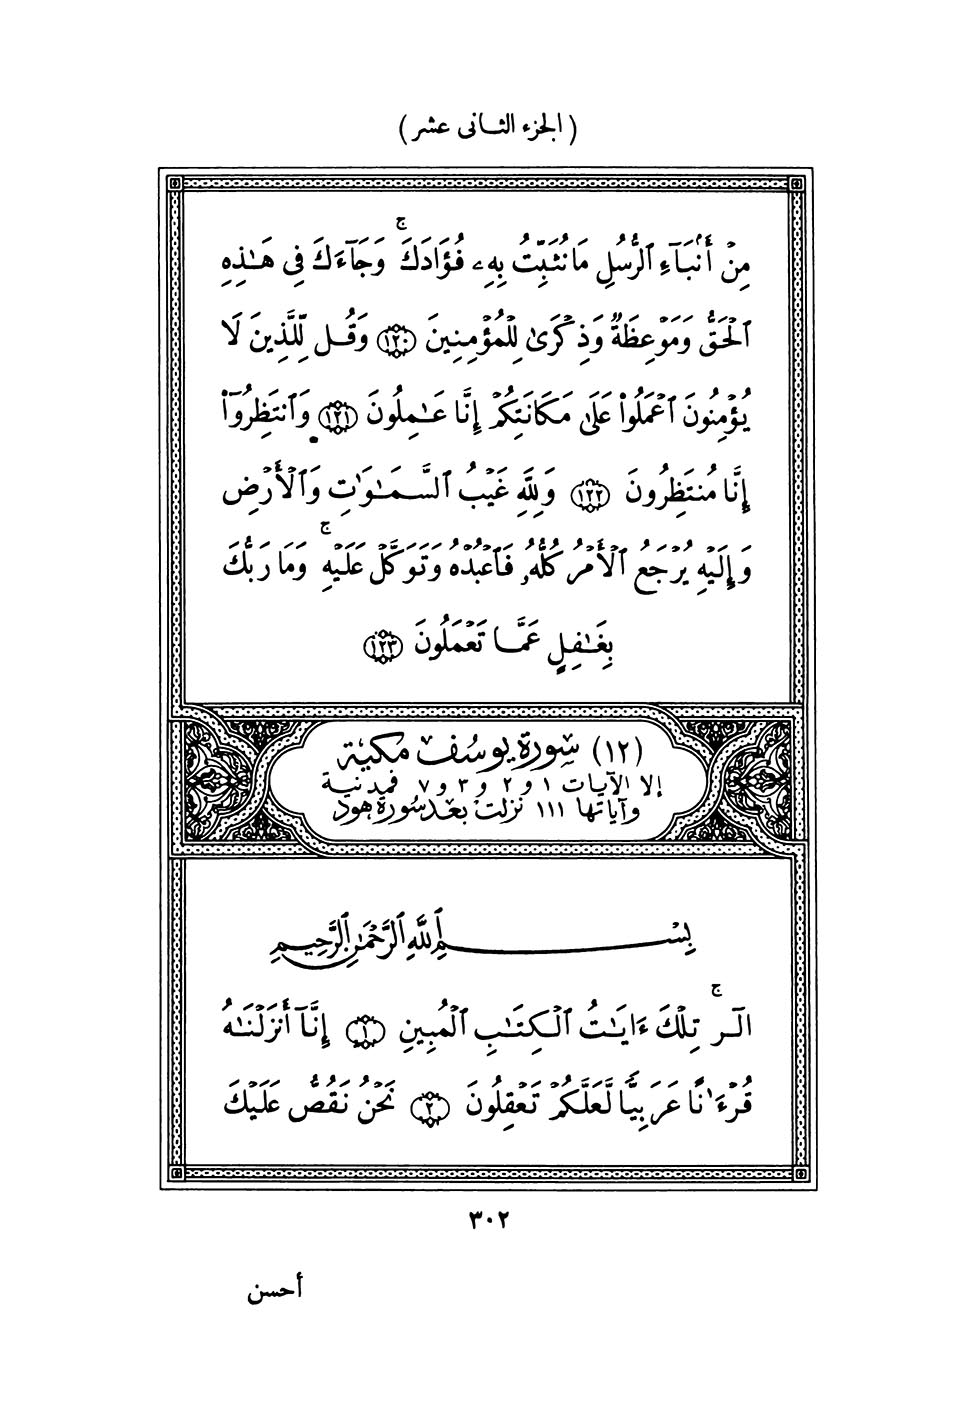 ( الجزء الثانى عشر )
مِنْ أَنۢبَآءِ ٱلرُّسُلِ مَا نُثَبِّتُ بِهِۦ فُؤَادَكَ ۚ وَجَآءَكَ فِى هَـٰذِهِ
ٱلْحَقُّ وَمَوْعِظَةٌ وَذِكْرَىٰ لِلْمُؤْمِنِينَ ١٢٠ وَقُل لِّلَّذِينَ لَا
يُؤْمِنُونَ ٱعْمَلُوا۟ عَلَىٰ مَكَانَتِكُمْ إِنَّا عَـٰمِلُونَ ١٢١ وَٱنتَظِرُوٓا۟
إِنَّا مُنتَظِرُونَ ١٢٢ وَلِلَّهِ غَيْبُ ٱلسَّمَـٰوَٰتِ وَٱلْأَرْضِ
وَإِلَيْهِ يُرْجَعُ ٱلْأَمْرُ كُلُّهُۥ فَٱعْبُدْهُ وَتَوَكَّلْ عَلَيْهِ ۚ وَمَا رَبُّكَ
بِغَـٰفِلٍ عَمَّا تَعْمَلُونَ ١٢٣
(١٢) سُورَة يوسُف مكية
إلا الآيات ١ و ٢ و ٣ و ٧ فمدنية
وآياتها ١١١ نزلت بعد سُورة هود
بِسْمِ ٱللَّهِ ٱلرَّحْمَـٰنِ ٱلرَّحِيمِ
الٓر ۚ تِلْكَ ءَايَـٰتُ ٱلْكِتَـٰبِ ٱلْمُبِينِ ١ إِنَّآ أَنزَلْنَـٰهُ
قُرْءَٰنًا عَرَبِيًّا لَّعَلَّكُمْ تَعْقِلُونَ ٢ نَحْنُ نَقُصُّ عَلَيْكَ
٣٠٢
أحسن